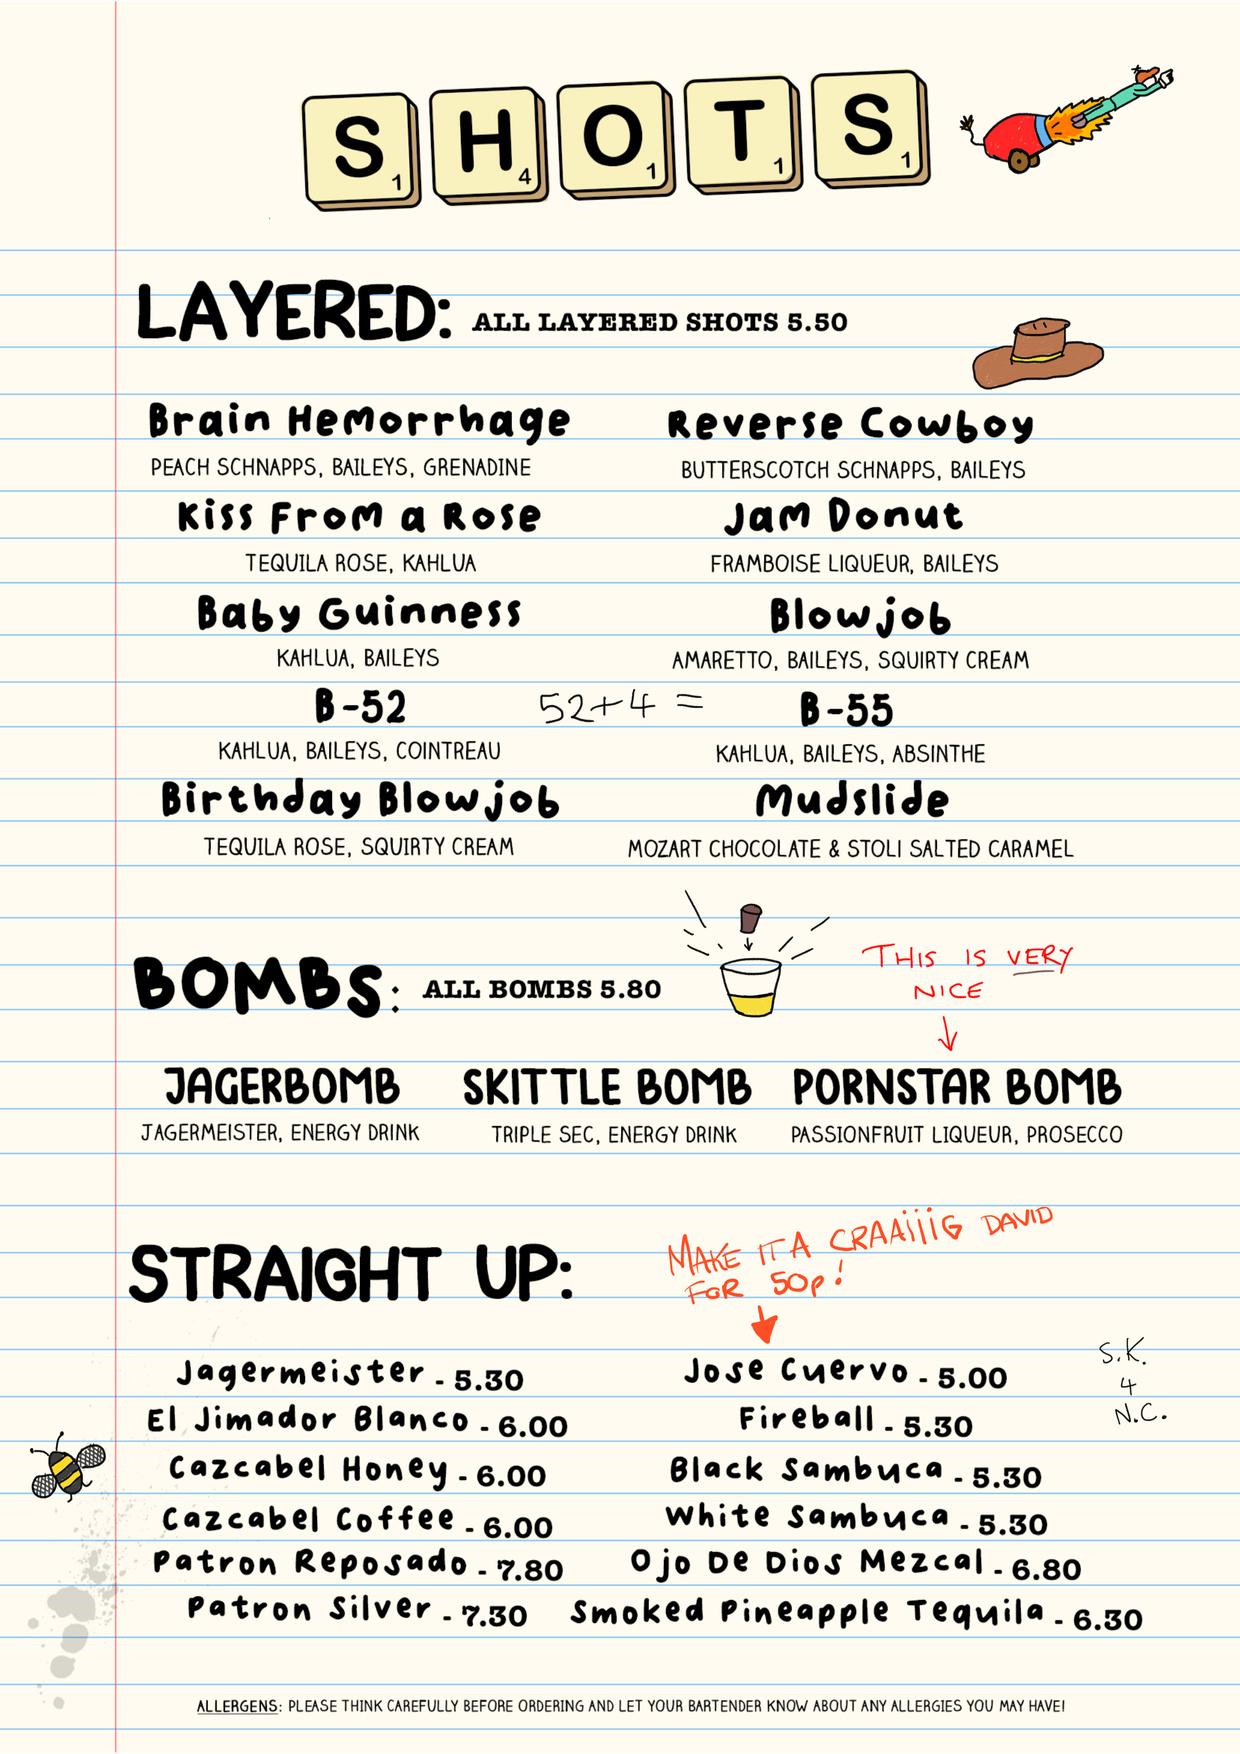 S1 H4 O1 T1 S1
LAYERED: ALL LAYERED SHOTS 5.50
Brain Hemorrhage
PEACH SCHNAPPS, BAILEYS, GRENADINE
Reverse Cowboy
BUTTERSCOTCH SCHNAPPS, BAILEYS
Kiss From a Rose
TEQUILA ROSE, KAHLUA
Jam Donut
FRAMBOISE LIQUEUR, BAILEYS
Baby Guinness
KAHLUA, BAILEYS
Blowjob
AMARETTO, BAILEYS, SQUIRTY CREAM
B-52
KAHLUA, BAILEYS, COINTREAU
52+4 =
B-55
KAHLUA, BAILEYS, ABSINTHE
Birthday Blowjob
TEQUILA ROSE, SQUIRTY CREAM
Mudslide
MOZART CHOCOLATE & STOLI SALTED CARAMEL
BOMBS: ALL BOMBS 5.80
THIS IS VERY
NICE
JAGERBOMB
JAGERMEISTER, ENERGY DRINK
SKITTLE BOMB
TRIPLE SEC, ENERGY DRINK
PORNSTAR BOMB
PASSIONFRUIT LIQUEUR, PROSECCO
STRAIGHT UP:
MAKE IT A CRAAiiiG DAVID
FOR 50p!
Jagermeister - 5.30
El Jimador Blanco - 6.00
Cazcabel Honey - 6.00
Cazcabel Coffee - 6.00
Patron Reposado - 7.80
Patron Silver - 7.30
Jose Cuervo - 5.00
Fireball - 5.30
Black Sambuca - 5.30
White Sambuca - 5.30
Ojo De Dios Mezcal - 6.80
Smoked Pineapple Tequila - 6.30
S.K.
4
N.C.
ALLERGENS: PLEASE THINK CAREFULLY BEFORE ORDERING AND LET YOUR BARTENDER KNOW ABOUT ANY ALLERGIES YOU MAY HAVE!